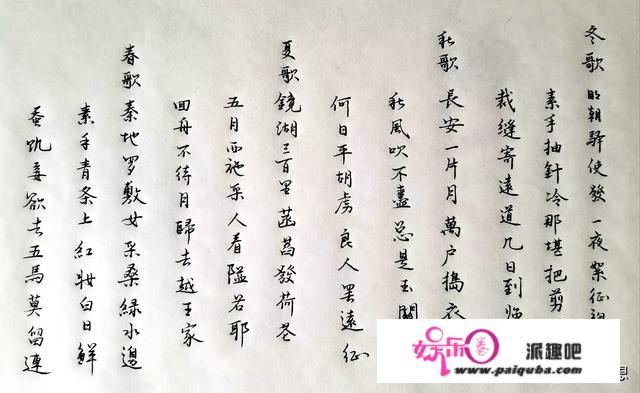 冬歌 明朝驛使發一夜絮征
素手抽針冷那堪把剪
裁缝寄遠道几日到临
秋歌 長安一片月萬户搗衣
秋風吹不盡总是玉關
何日平胡虏良人罢遠征
夏歌 鏡湖三百里菡萏發荷花
五月西施采人看隘若耶
回舟不待月歸去越王家
春歌 秦地罗敷女采桑綠水邊
素手青条上紅妝白日鮮
蚕飢妾欲去五馬莫留連
娱乐圈 派趣吧
www.paiquba.com